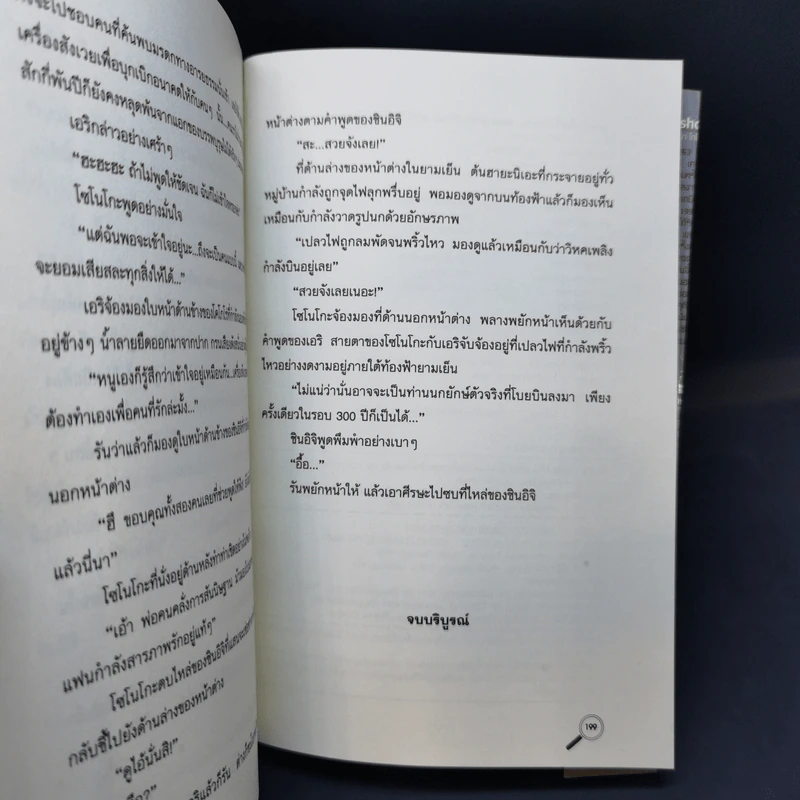 จะไปชอบคนที่ค้นพบมรดกทางอารยธรรม
เครื่องสังเวยเพื่อบุกเบิกอนาคตให้กับคนๆ นั้น
สักกี่พันปีก็ยังคงหลุดพ้นจากแอกของบรรพบุรุษ
เอริกล่าวอย่างเศร้าๆ
“ฮะฮะฮะ ถ้าไม่พูดให้ชัดเจน ฉันก็ไม่เข้าใจหรอกนะ
โซโนโกะพูดอย่างมั่นใจ
“แต่ฉันพอจะเข้าใจอยู่นะ...ถึงจะเป็นคนแบบนี้
จะยอมเสียสละทุกสิ่งให้ได้...”
เอริจ้องมองใบหน้าด้านข้างของโคโกโร่ที่กำลัง
อยู่ข้างๆ น้ำลายยืดออกมาจากปาก กรนเสียงดัง
“หนูเองก็รู้สึกว่าเข้าใจอยู่เหมือนกัน...
ต้องทำเองเพื่อคนที่รักล่ะมั้ง...”
รันว่าแล้วก็มองดูใบหน้าด้านข้างของชินอิจิ
นอกหน้าต่าง
“ฮึ ขอบคุณทั้งสองคนเลยที่ช่วยพูดให้ฟัง
แล้วนี่นา”
โซโนโกะที่นั่งอยู่ด้านหลังทำท่าเชิด
“เอ้า พ่อคนคลั่งการสันนิษฐาน
แฟนกำลังสารภาพรักอยู่แท้ๆ”
โซโนโกะตบไหล่ของชินอิจิที่
กลับชี้ไปยังด้านล่างของหน้าต่าง
“ดูไอ้นั่นสิ!”
หน้าต่างตามคำพูดของชินอิจิ
“สะ...สวยจังเลย!”
ที่ด้านล่างของหน้าต่างในยามเย็น ต้นฮายะนิเอะที่กระจายอยู่ทั่ว
หมู่บ้านกำลังถูกจุดไฟลุกพรึ่บอยู่ พอมองดูจากบนท้องฟ้าแล้วก็มองเห็น
เหมือนกับกำลังวาดรูปนกด้วยอักษรภาพ
“เปลวไฟถูกลมพัดจนพริ้วไหว มองดูแล้วเหมือนกับว่าวิหคเพลิง
กำลังบินอยู่เลย”
“สวยจังเลยเนอะ!”
โซโนโกะจ้องมองที่ด้านนอกหน้าต่าง พลางพยักหน้าเห็นด้วยกับ
คำพูดของเอริ สายตาของโซโนโกะกับเอริจับจ้องอยู่ที่เปลวไฟที่กำลังพริ้ว
ไหวอย่างงดงามอยู่ภายใต้ท้องฟ้ายามเย็น
“ไม่แน่ว่านั่นอาจจะเป็นท่านนกยักษ์ตัวจริงที่โบยบินลงมา เพียง
ครั้งเดียวในรอบ 300 ปีก็เป็นได้...”
ชินอิจิพูดพึมพำอย่างเบาๆ
“อื้อ...”
รันพยักหน้าให้ แล้วเอาศีรษะไปซบที่ไหล่ของชินอิจิ
จบบริบูรณ์
199